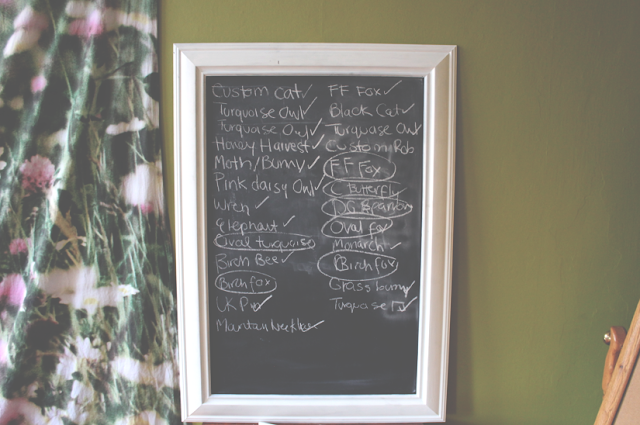 Custom Cat
Turquoise Owl
Turquoise Owl
Honey Harvest
Moth/Bunny
Pink daisy Owl
Wren
Elephant
Oval turquoise
Birch Bee
Birch fox
UK Pin
FF Fox
Black Cat
Turquoise Owl
Custom Rob
FF Fox
Butterfly
DG Sparrow
Oval fox
Monarch
Birch fox
Grass bunny
Turquoise